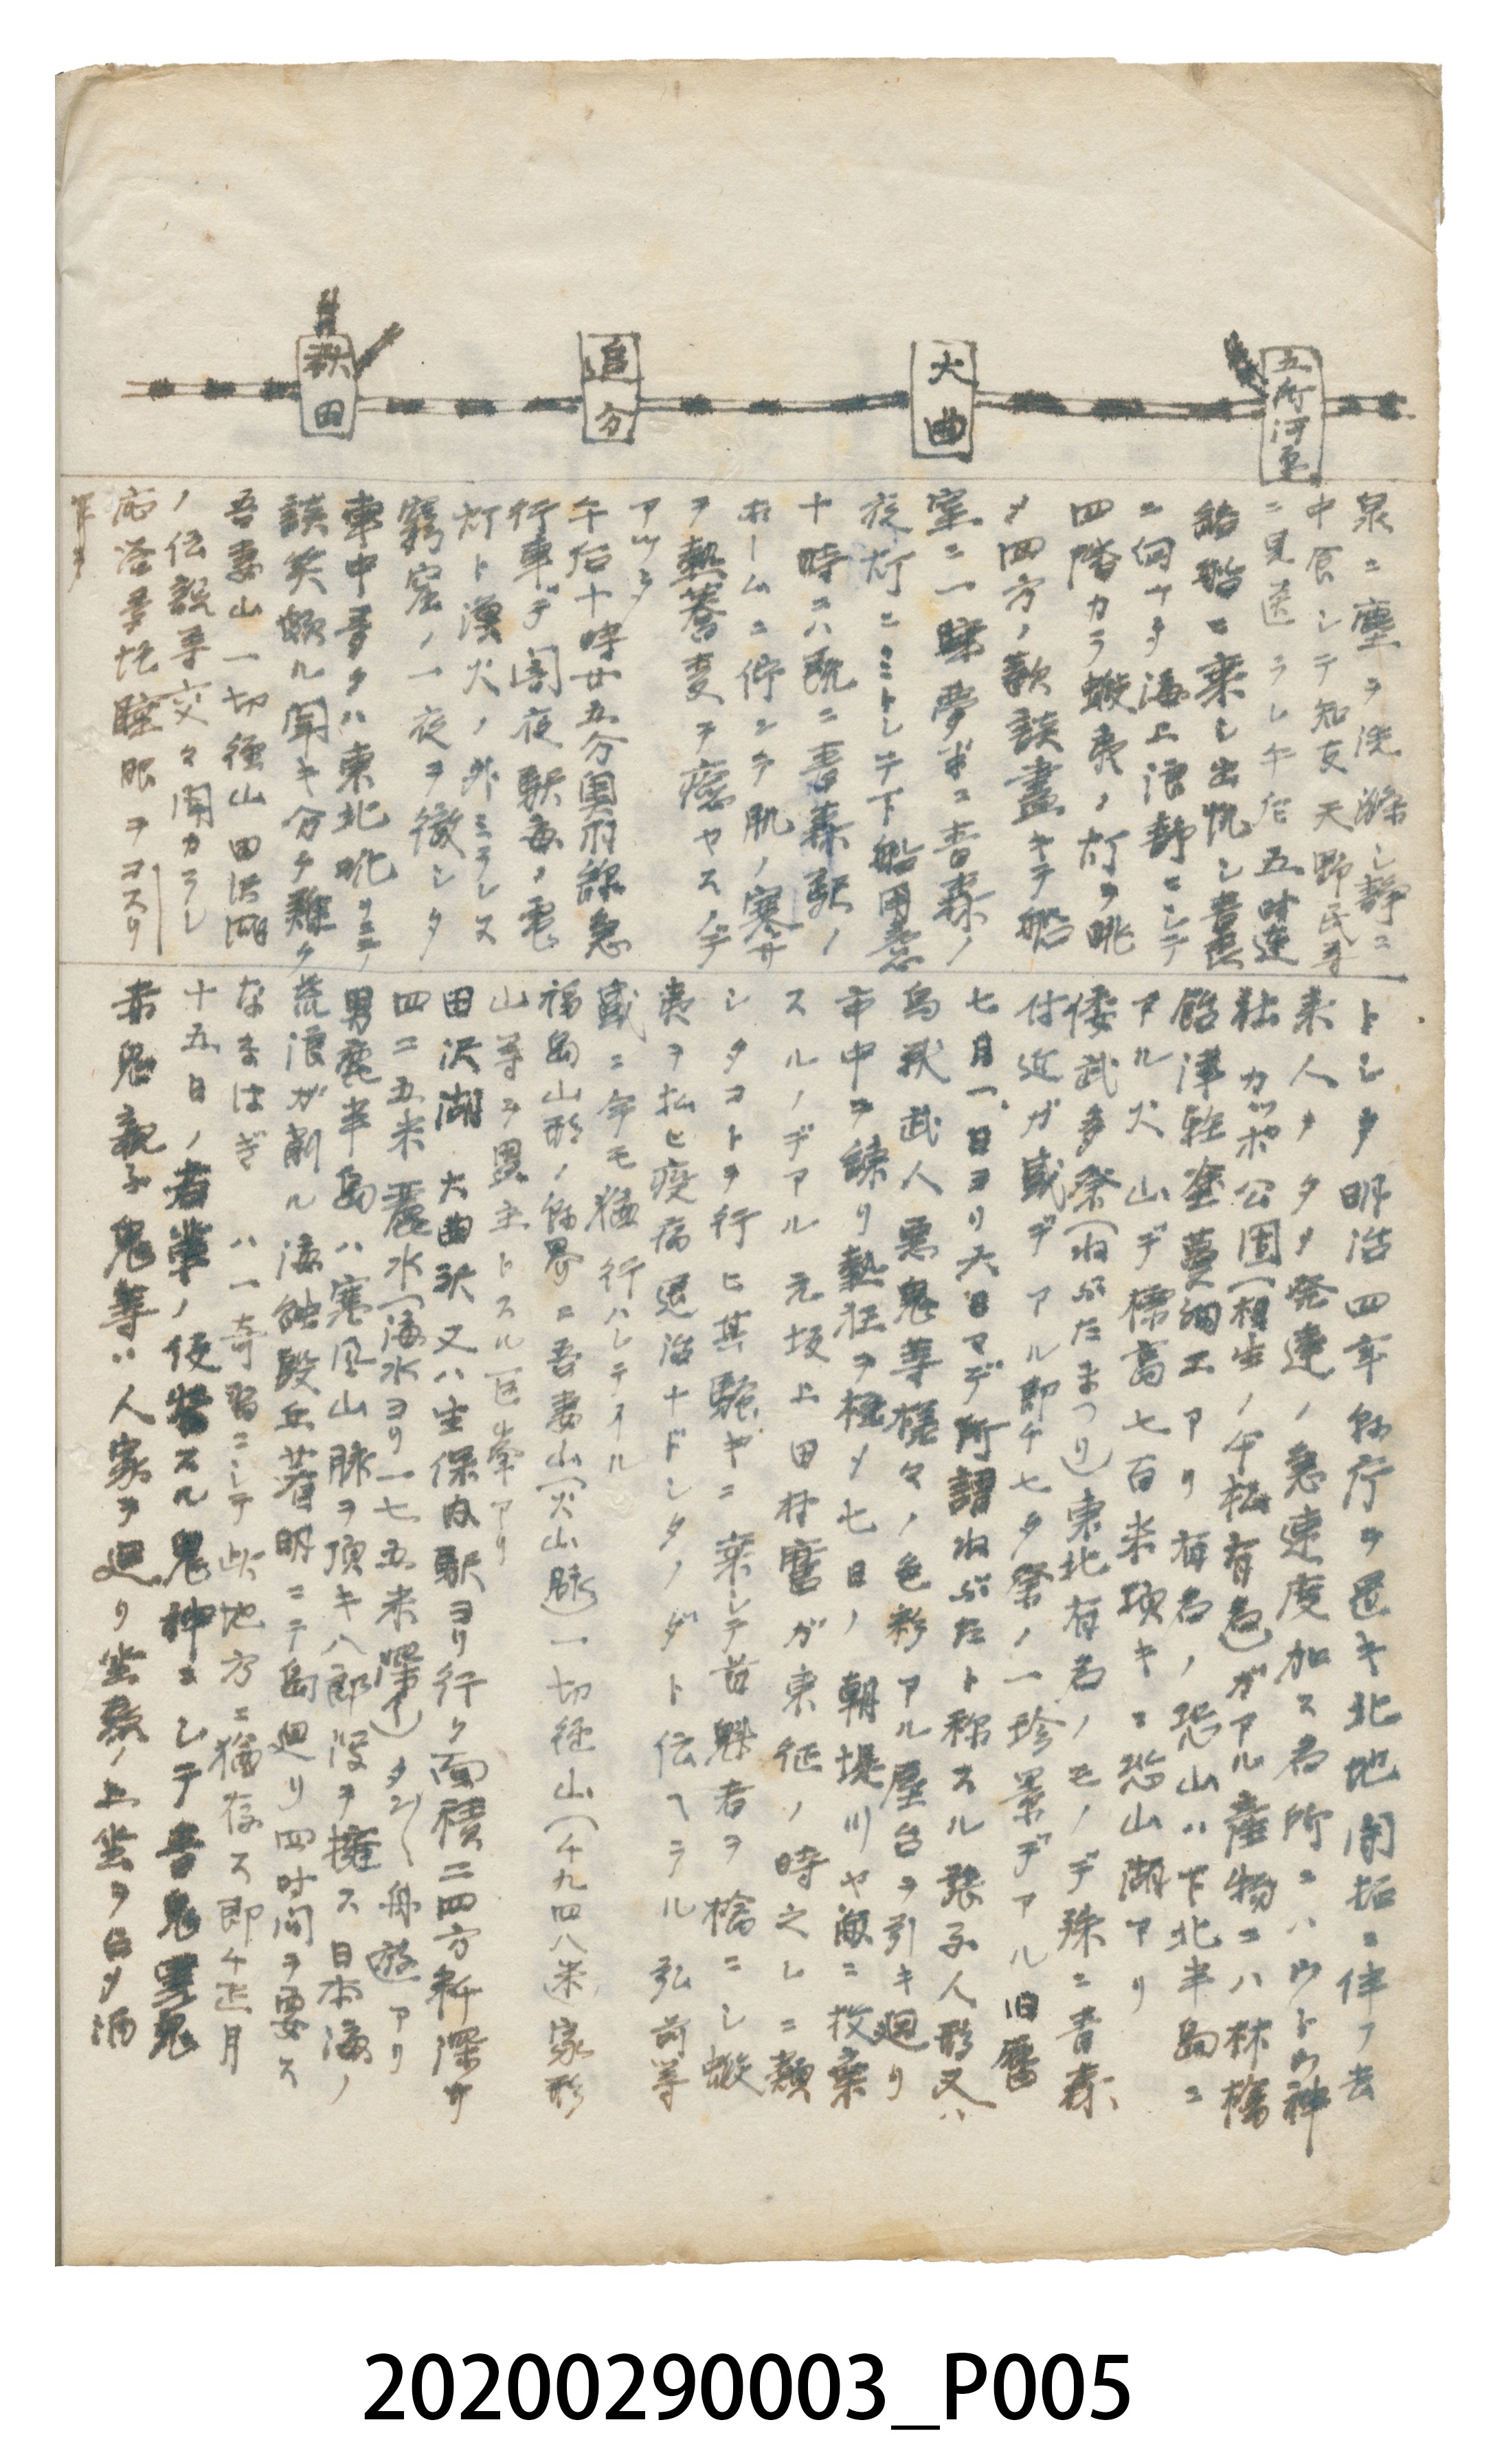 五所河原
大曲
追分
秋田
泉ニ塵ヲ洗滌シ静ニ
中食シテ知友天野氏等
ニ見送ラレ午后五時連
絡船ニ乗シ出帆シ青森
ニ向ツタ海上浪静ニシテ
四階カラ蝦夷ノ灯ヲ眺
メ四方ノ歓談盡キテ船
室ニ一睡夢半ニ青森ノ
夜灯ニミトレテ下船用意
十時ニハ既ニ青森駅ノ
ホームニ佇ンテ肌ノ寒サ
ヲ熱蕎麦ヲ癒ヤスノデ
アツタ
午后十時廿五分奥羽線急
行車デ闇夜駅毎ノ電
灯ト漢火ノ外ミエレヌ
窮窟ノ一夜ヲ徹シタ
車中青タハ東北訛リニテ
談笑頻ル聞キ分チ難ク
吾妻山一切徑山田沢湖
ノ伝説等交々聞カラレ
睡眠ヲコスリ
トシタ明治四年縣庁ヲ置キ北地開拓ニ伴フ去
来人タタメ発達ノ急速度加ス名所ニハウトウ神
社カッポ公園(相生ノ千松有名)ガアル産物ニハ林檎
飴津軽塗蔓細工アリ有名ノ恐山ハ下北半島ニ
アル火山デ標高七百米頂キニ恐山湖アリ
倭武多祭(ねぶたまつり)東北有名ノモノデ殊ニ青森
付近ガ盛デアル即チ七夕祭ノ一珍景デアル旧暦
七月一日ヨリ六日マデ所謂ねぶたト称スル張子人形又ハ
鳥獣武人悪鬼等様々ノ色彩アル屋台ヲ引キ廻リ
市中ヲ練リ熱狂ヲ極メ七日ノ朝堤川ヤ海ニ投棄
スルノデアル元坂上田村麿ガ東征ノ時之レニ類
シタコトヲ行ヒ其騒ギニ乗シテ酋魁者ヲ檎ニシ蝦
夷ヲ払ヒ疫病退治ナドシタノダト伝ヘラル弘前等
盛ニ今モ猶行ハレテイル
福島山形ノ縣界ニ吾妻山(火山脈)一切徑山(千九四八米)家形
山等ヲ盟主トスル巨峯アリ
田沢湖 大曲駅又ハ生保内駅ヨリ行ク面積二四方粁深サ
四二五米麗水(海水ヨリ一七五米深イ)タメ舟遊アリ
男鹿半島ハ寒風山脉ヲ頂キ八郎潟ヲ擁ス日本海ノ
荒浪ガ削ル海蝕段丘著明ニテ島廻リ四時間ヲ要ス
なまはぎ ハ一奇習ニシテ此地方ニ猶存ス即チ正月
十五日ノ者輩ノ使者スル鬼神ニシテ青鬼黒鬼
赤鬼親子鬼等ハ人家ヲ廻リ坐敷ノ上坐ヲ占メ酒
20200290003_P005